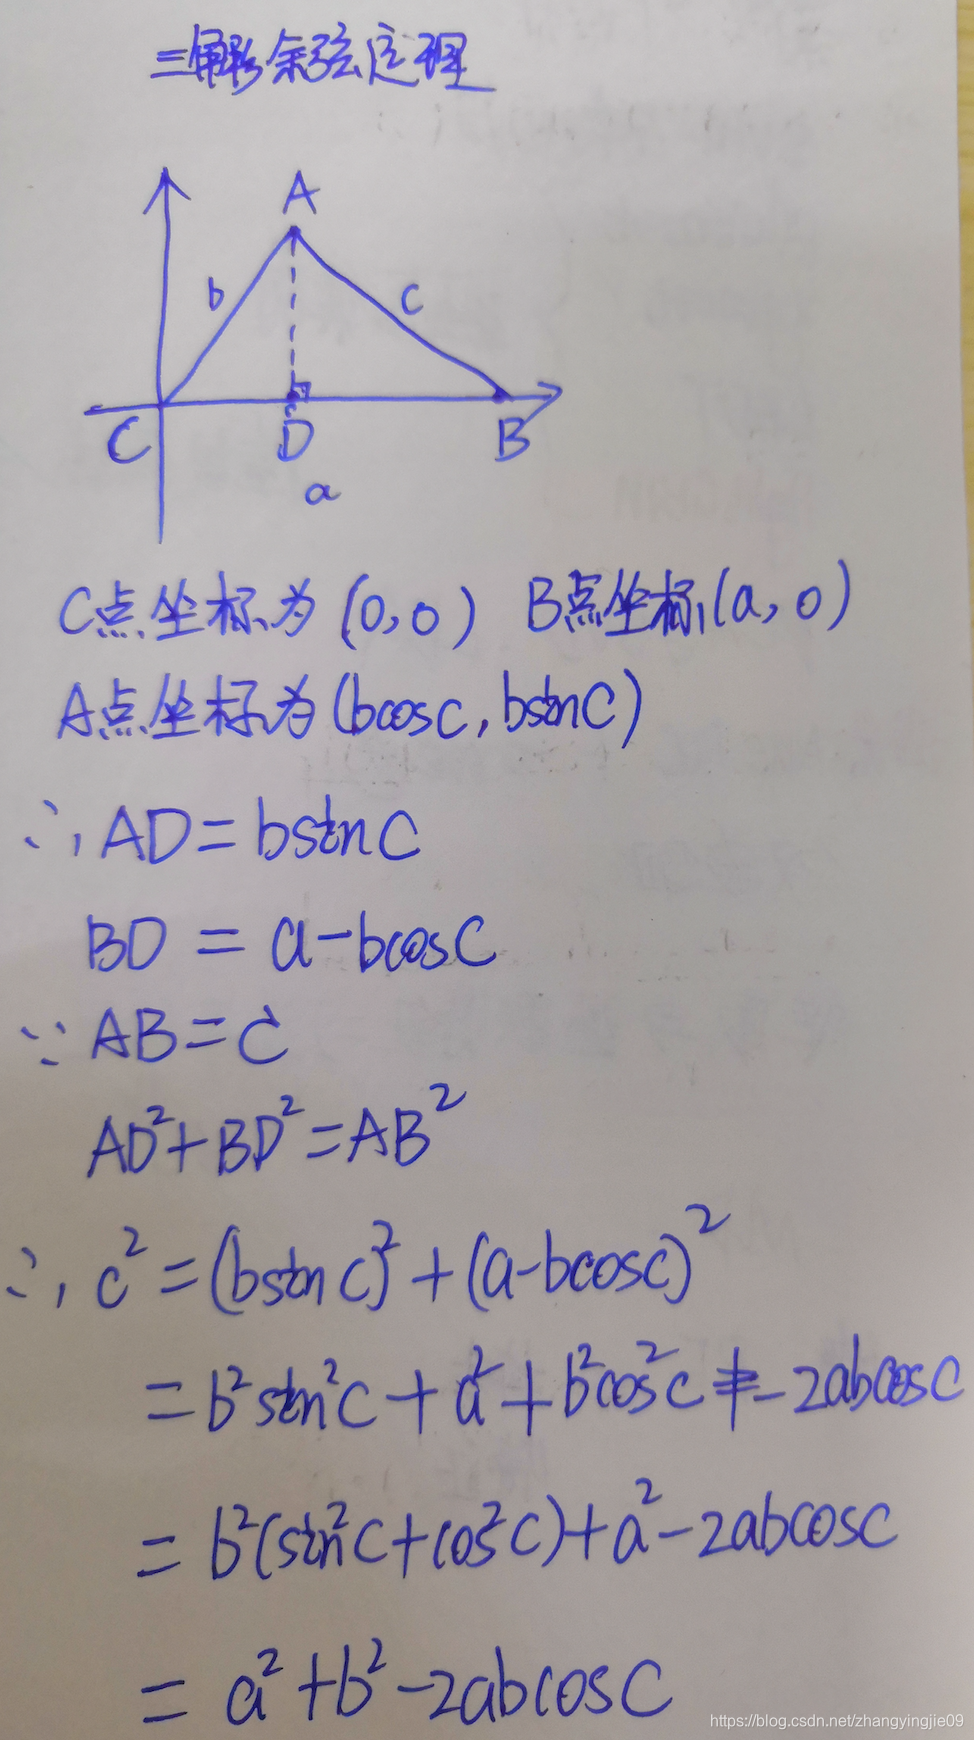 三角形余弦定理
A
b
c
C
D
B
a
C点坐标为(0,0) B点坐标(a,0)
A点坐标为(bcosC,bsinC)
∴AD=bsinC
BD=a-bcosC
∵AB=c
AD²+BD²=AB²
∴c²=(bsinC)²+(a-bcosC)²
=b²sin²C+a²+b²cos²C-2abcosC
=b²(sin²C+cos²C)+a²-2abcosC
=a²+b²-2abcosC
https://blog.csdn.net/zhangyingjie09